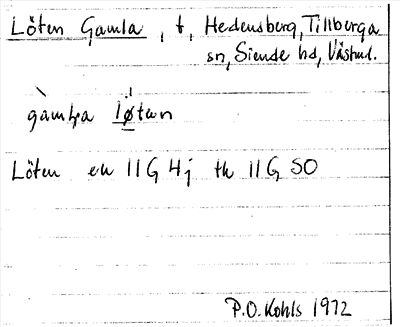 Löten Gamla, t, Hedensberg, Tillberga
sn, Siende hd, Västml.
gàmḷa lǿtæn
Löten ek 11 G 4j tk 11 G SO
P.O. Kohls 1972